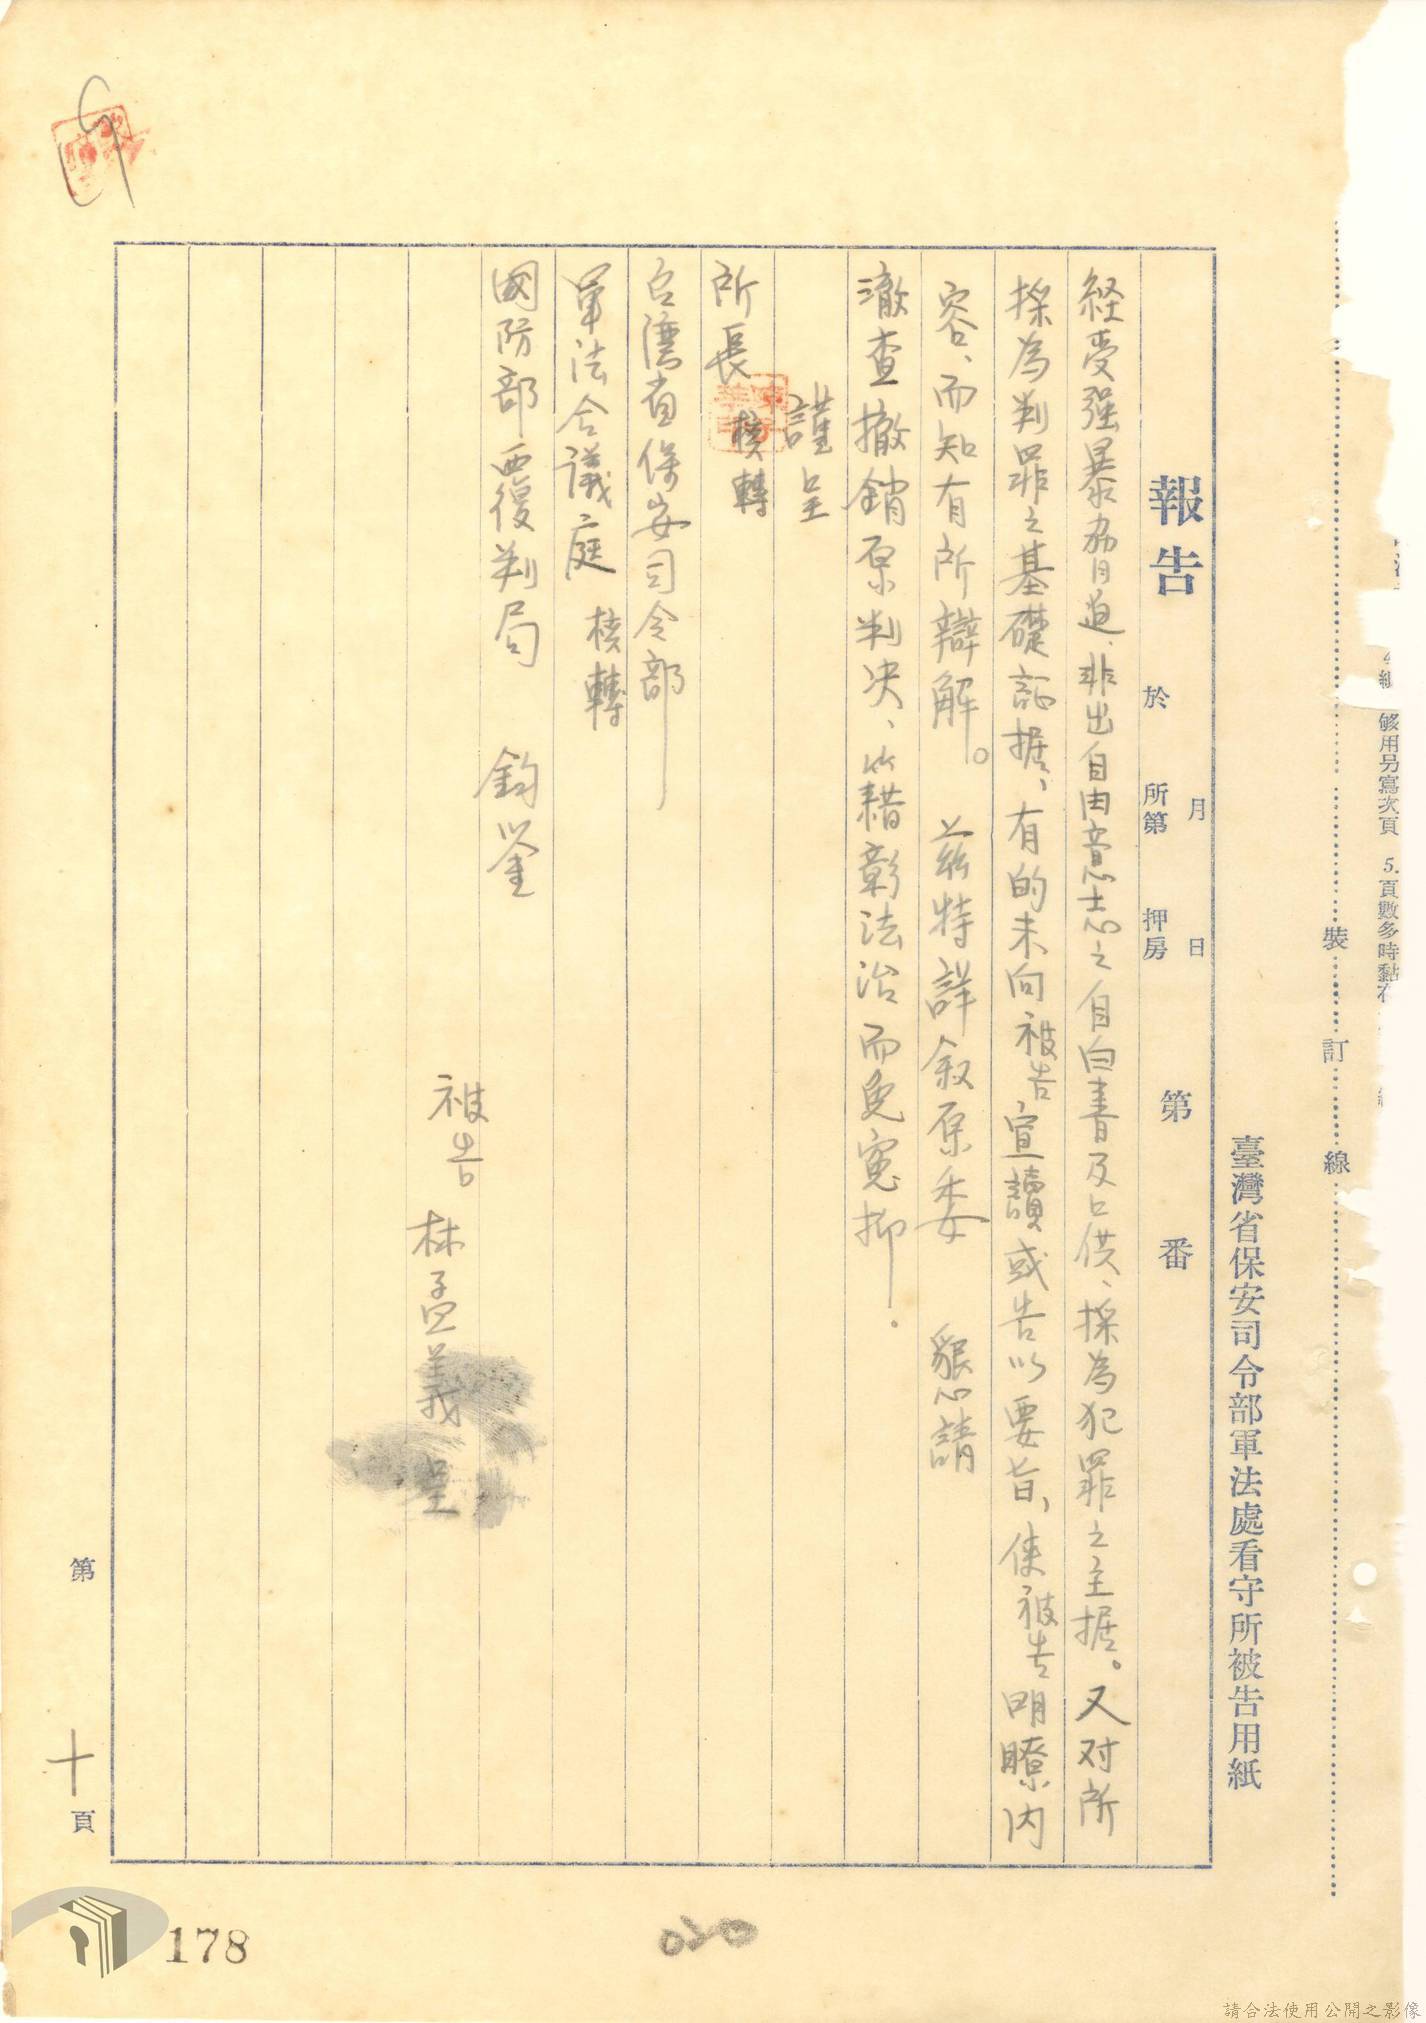 够用另寫次頁 5.頁數多時黏在
裝訂線
臺灣省保安司令部軍法處看守所被告用紙
報告 於 所第 押房 月 日 第 番
経受强暴脅迫、非出自由意志之自白書及口供、採為犯罪之主据。又对所
採為判罪之基礎証据、有的未向被告宣讀或告以要旨、使被告明瞭内
容、而知有所辯解。 茲特詳叙原委 懇請
澈查撤銷原判决、藉彰法治而免寃抑.
謹呈
所長 核轉
台湾省保安司令部
軍法合議庭 核轉
國防部覆判局 鈞鉴
被告 林孟義 呈
第十頁
178
020
請合法使用公開之影像